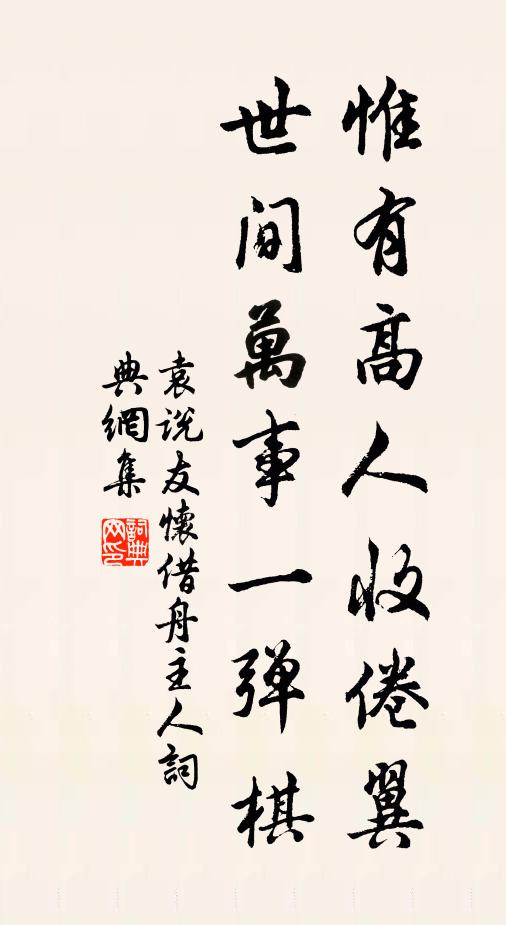 惟有高人收倦翼
世间萬事一弹棋
袁说友懷借舟主人詞
典網集
詞典
网印